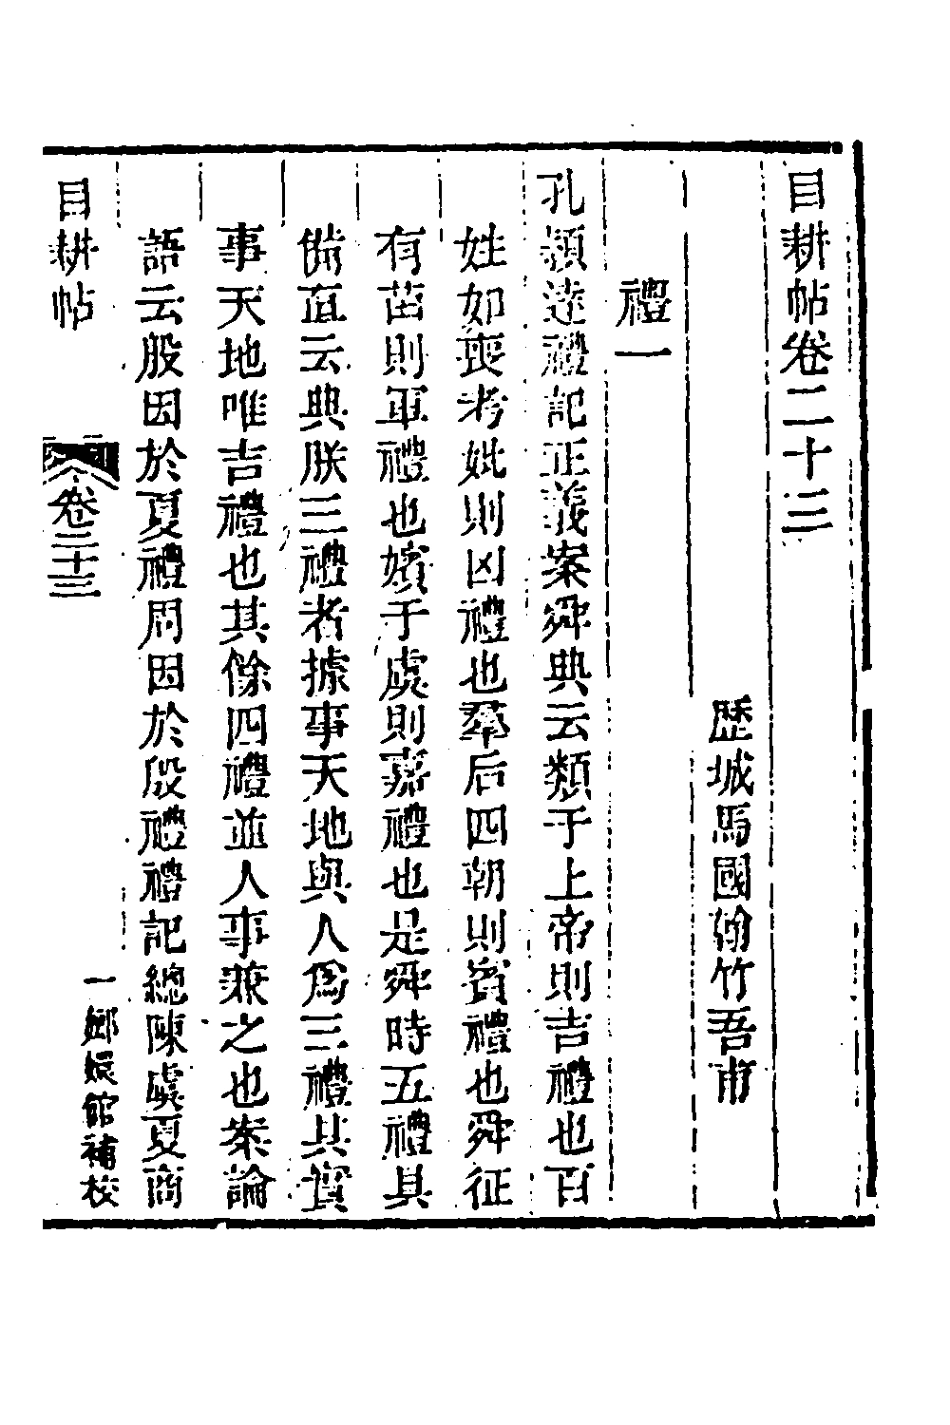 目耕帖卷二十三
歷城馬國翰竹吾甫
禮一
孔頴達禮記正義案舜典云類于上帝則吉禮也百
姓如喪考妣則凶禮也羣后四朝則賓禮也舜征
有苗則軍禮也嬪于虞則嘉禮也是舜時五禮具
備直云典朕三禮者據事天地與人爲三禮其實
事天地唯吉禮也其餘四禮並人事兼之也案論
語云殷因於夏禮周因於殷禮禮記總陳虞夏商
目耕帖
卷二十三
一
嫏嬛館補校